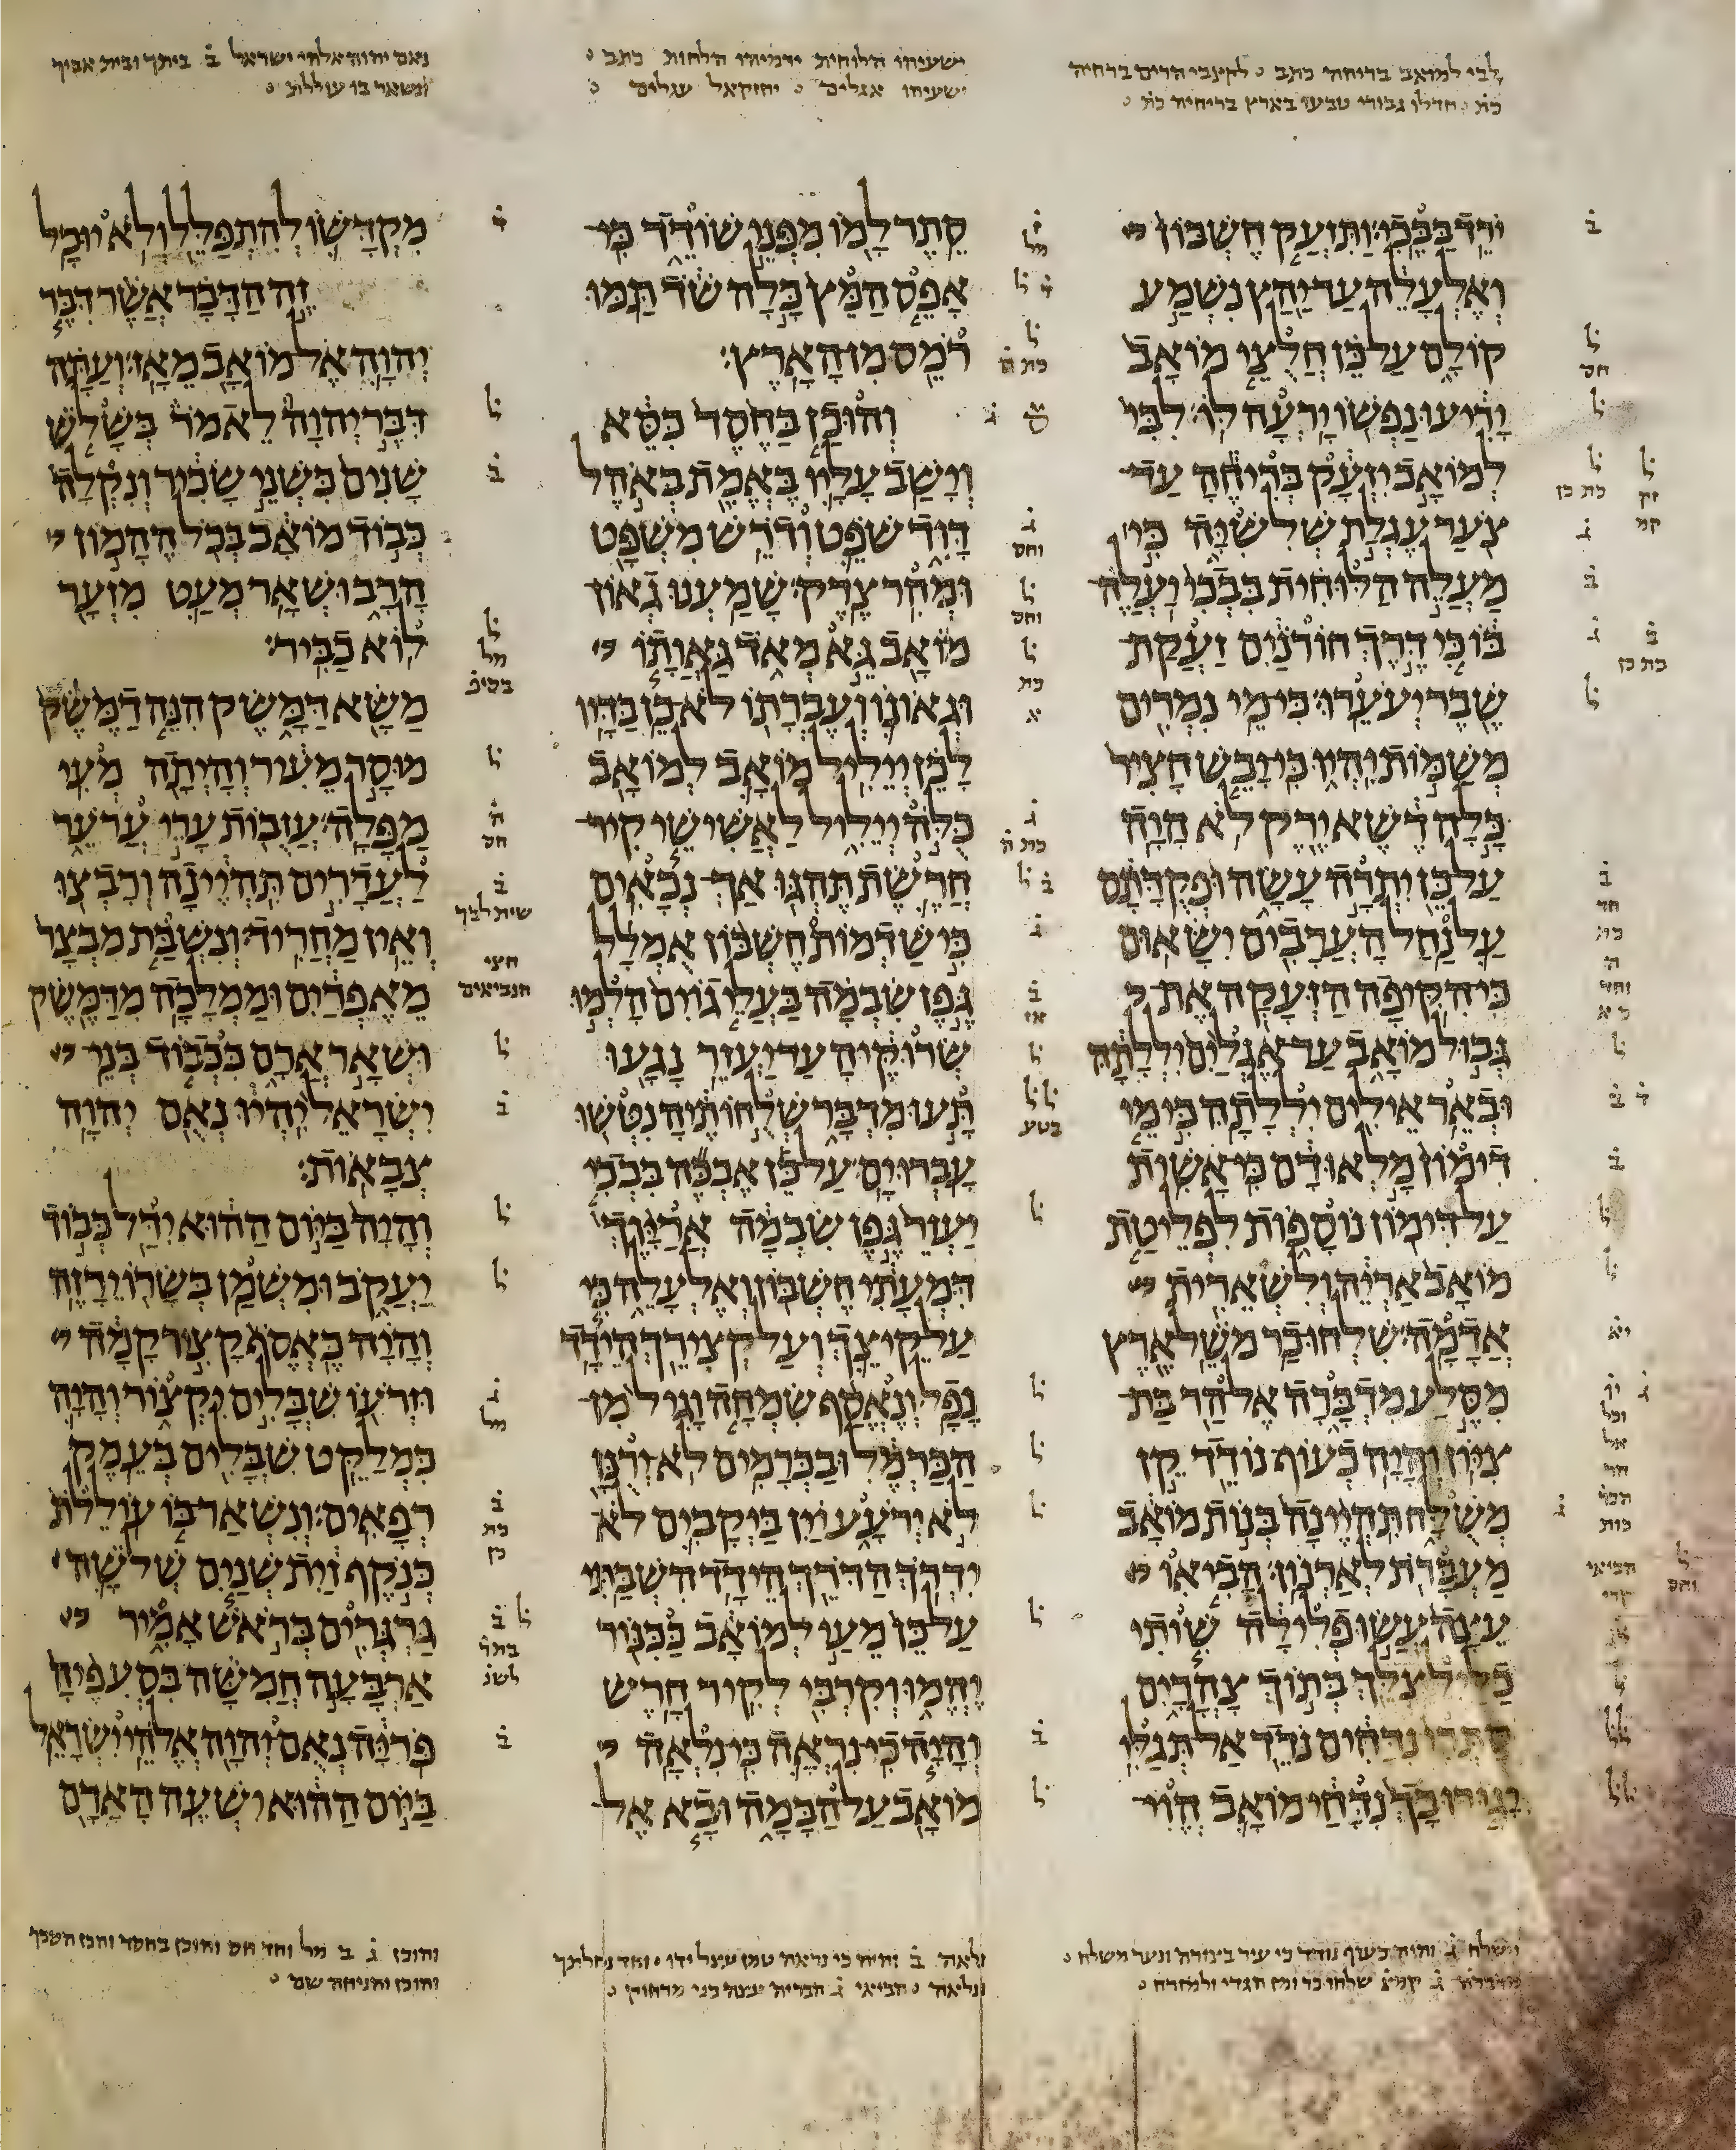 לבי למואב בריחה כתב לקצבי הרים ברחיה
כת חדלו גבורי טבעו בארץ בריחיה כת
ישעיהו הלוחית ירמיהו הלחות כתב
ישעיהו אגלים יחזקאל עגלים
נאם יהוה אלהי ישראל ב ביתך ובית אביך
ונשאר בו עוללת
ירד בבכי ותזעק חשבון
ואלעלה עד יהץ נשמע
קולם על כן חלצי מואב
יריעו נפשו ירעה לו לבי
למואב יזעק בריחה עד
צער עגלת שלשיה כי
מעלה הלוחית בבכי יעלה
בו כי דרך חורנים זעקת
שבר יעערו כי מי נמרים
משמות יהיו כי יבש חציר
כלה דשא ירק לא היה
על כן יתרה עשה ופקדתם
על נחל הערבים ישאום
כי הקיפה הזעקה את
גבול מואב עד אגלים יללתה
ובאר אילים יללתה כי מי
דימון מלאו דם כי אשית
על דימון נוספות לפליטת
מואב אריה ולשארית
אדמה שלחו כר משל ארץ
מסלע מדברה אל הר בת
ציון והיה כעוף נודד קן
משלח תהיינה בנות מואב
מעברת לארנון הביאו
עצה עשו פלילה שיתי
כליל צלך בתוך צהרים
סתרי נדחים נדד אל תגלי
יגורו בך נדחי מואב הוי
סתר למו מפני שודד כי
אפס המץ כלה שד תמו
רמס מן הארץ
והוכן בחסד כסא
וישב עליו באמת באהל
דוד שפט ודרש משפט
ומהר צדק שמענו גאון
מואב גא מאד גאותו
וגאונו ועברתו לא כן בדיו
לכן ייליל מואב למואב
כלה ייליל לאשישי קיר
חרשת תהגו אך נכאים
כי שדמות חשבון אמלל
גפן שבמה בעלי גוים הלמו
שרוקיה עד יעזר נגעו
תעו מדבר שלחותיה נטשו
עברו ים על כן אבכה בבכי
יעזר גפן שבמה אריוך
דמעתי חשבון ואלעלה כי
על קיצך ועל קצירך הידד
נפל ונאסף שמחה וגיל מן
הכרמל ובכרמים לא ירנן
לא ירעע יין ביקבים לא
ידרך הדרך הידד השבתי
על כן מעי למואב ככנור
יהמו וקרבי לקיר חרש
והיה כי נראה כי נלאה
מואב על הבמה ובא אל
מקדשו להתפלל ולא יוכל
זה הדבר אשר דבר
יהוה אל מואב מאז ועתה
דבר יהוה לאמר בשלש
שנים כשני שכיר ונקלה
כבוד מואב בכל ההמון
הרב ושאר מעט מזער
לוא כביר
משא דמשק הנה דמשק
מוסר מעיר והיתה מעי
מפלה עזבות ערי ערער
לעדרים תהיינה ורבצו
ואין מחריד ונשבת מבצר
מאפרים וממלכה מדמשק
ושאר ארם ככבוד בני
ישראל יהיו נאם יהוה
צבאות
והיה ביום ההוא ידל כבוד
יעקב ומשמן בשרו ירזה
והיה כאסף קציר קמה
וזרעו שבלים יקצור והיה
כמלקט שבלים בעמק
רפאים ונשאר בו עוללת
כנקף זית שנים שלשה
גרגרים בראש אמיר
ארבעה חמשה בסעפיה
פריה נאם יהוה אלהי ישראל
ביום ההוא ישעה האדם
משלח ג והיה כעוף נודד כי עיר בצורה ונער משלח
מדברה ג קמצ שלחו כר ומן הגדי ולמזרח
נלאה ב והיה כי נראה טמן עצל ידו וחד נחלתך
ונלאה הביאי ג הברית עצה בני מרחוק
והוכן ג ב מל וחד חס והוכן בחסד והכן השכך
והוכן והניחה שם